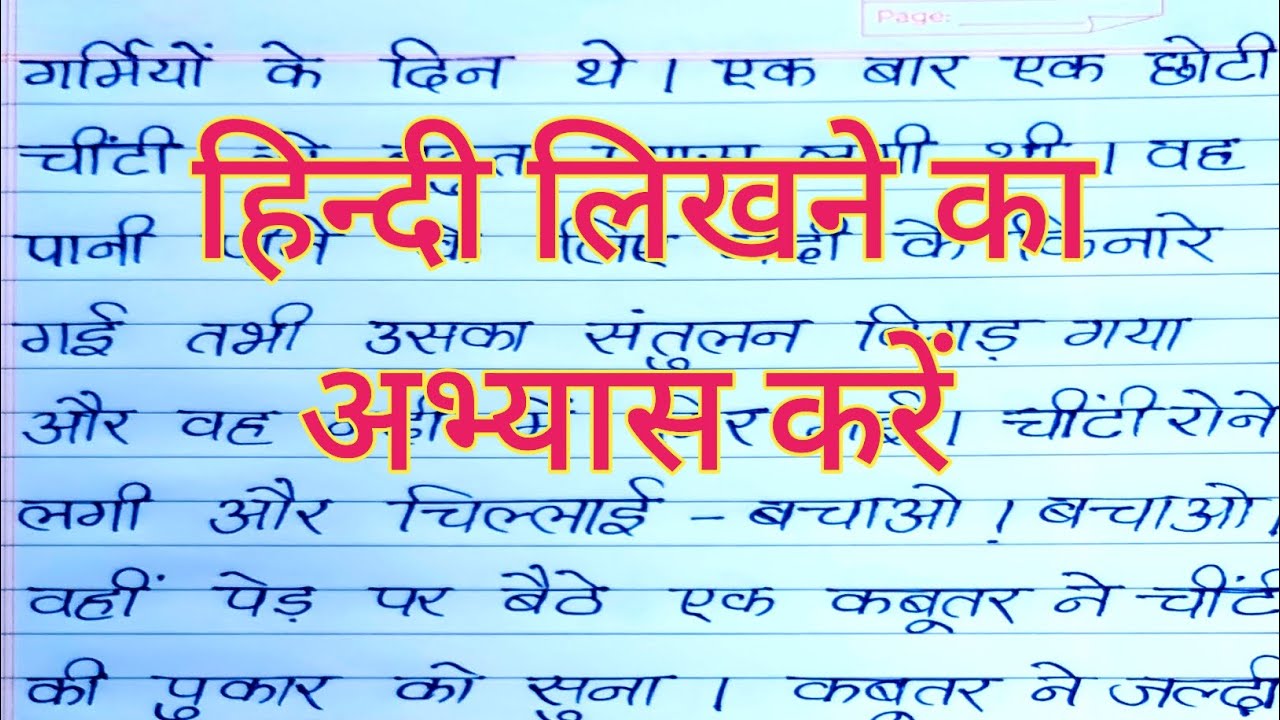 Page:
गर्मियों के दिन थे । एक बार एक छोटी
चींटी लगी थी । वह
हिन्दी लिखने का
पानी के किनारे
गई तभी उसका संतुलन बिगड़ गया
अभ्यास करें
और वह में चींटी रोने
लगी और चिल्लाई - बचाओ ! बचाओ
वहीं पेड़ पर बैठे एक कबूतर ने चींटी
की पुकार को सुना । कबूतर ने जल्दी